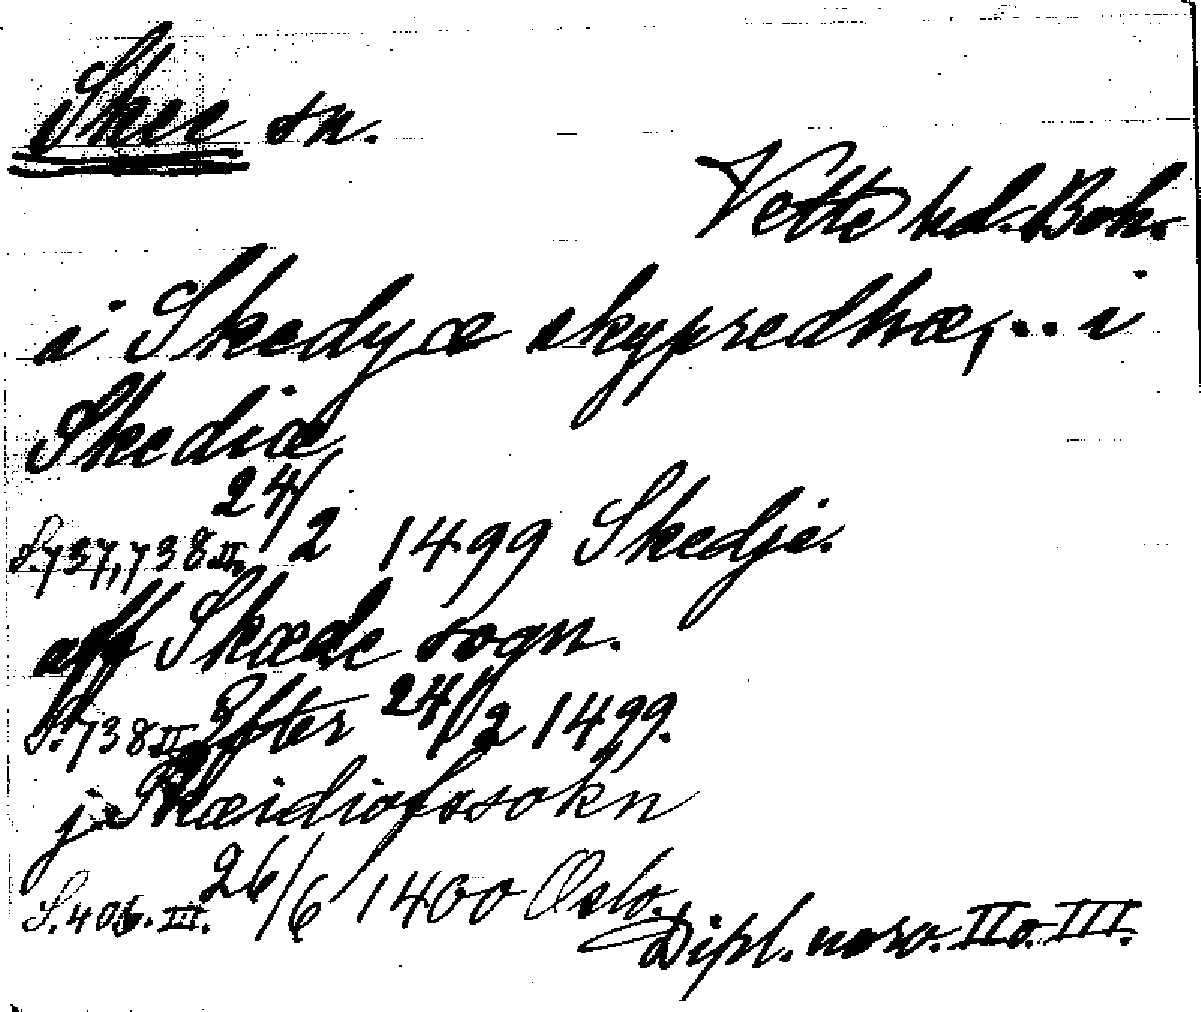 Skee sn.
Vette hd. Boh.
i Skedyæ skypredhæ, ... i
Skediæ
S. 737, 738 II. 24/2 1499 Skedje.
aff Skæde sogn.
S. 738 II Efter 24/2 1499.
j Skæidiofssokn
S. 406. III. 26/6 1400 Oslo.
Dipl. norv. II o. III.